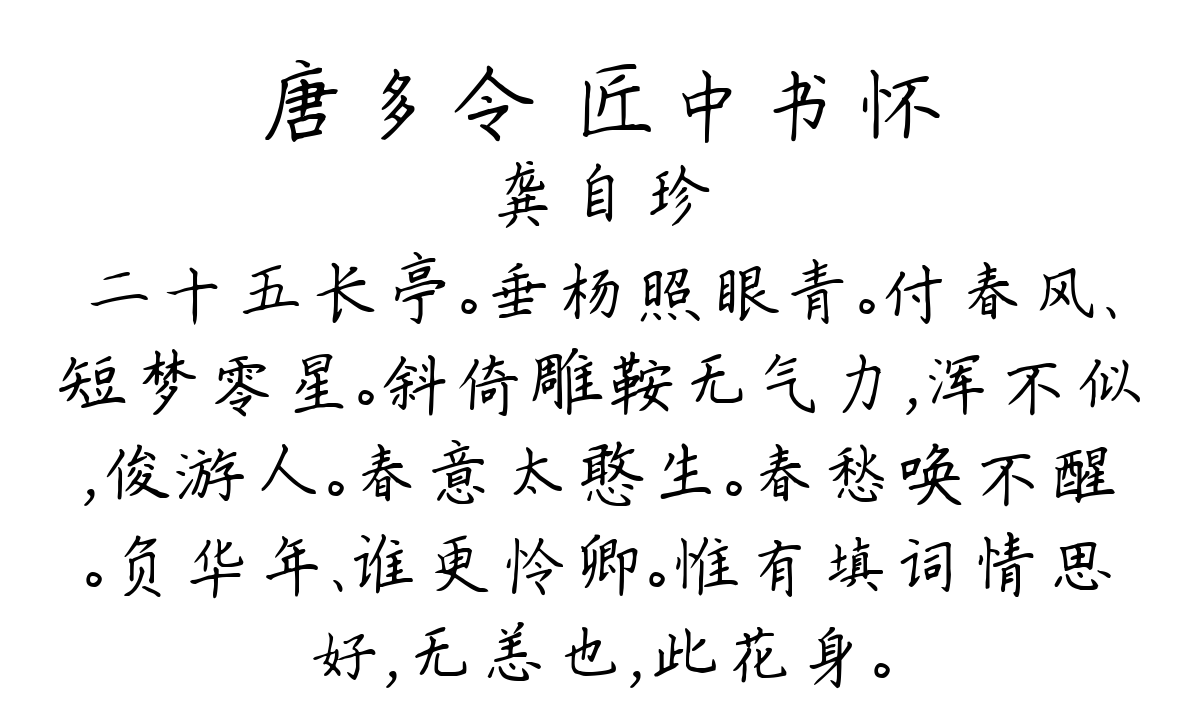 唐多令 匠中书怀
龚自珍
二十五长亭。垂杨照眼青。付春风、
短梦零星。斜倚雕鞍无气力,浑不似
,俊游人。春意太憨生。春愁唤不醒
。负华年、谁更怜卿。惟有填词情思
好,无恙也,此花身。